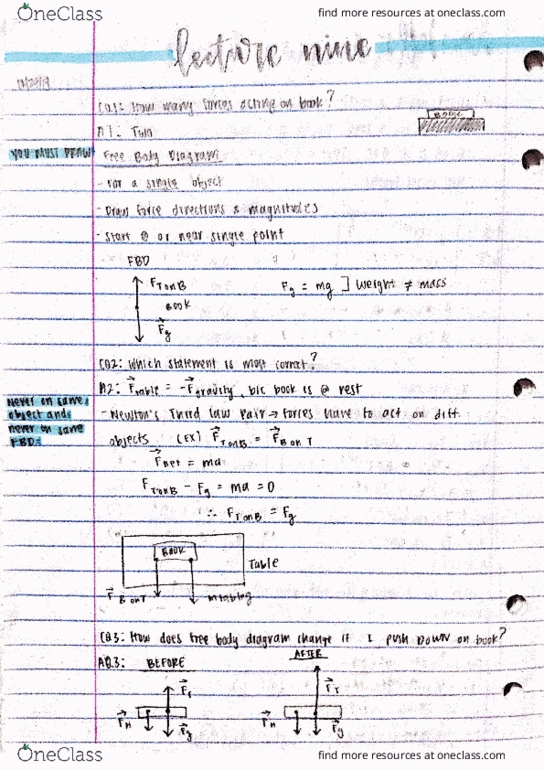 OneClass
find more resources at oneclass.com
lecture nine
CQ1: How many forces acting on book?
A1: Two
BOOK
YOU MUST DRAW
Free Body Diagram
- For a single object
- Draw force directions & magnitudes
- Start @ or near single point
FBD
F TonB
Fg = mg ] Weight ≠ mass
BOOK
Fg
CQ2: Which statement is most correct?
A2: Ftable = -Fgravity, b/c book is @ rest
Never on same object and never on same FBD.
- Newton's Third Law Pair → forces have to act on diff.
objects (EX) F TonB = F B on T
Fnet = ma
F TonB - Fg = ma = 0
∴ F TonB = Fg
BOOK
Table
F B on T
CQ3: How does free body diagram change if I push DOWN on book?
AQ3: BEFORE
AFTER
FT
FH
Fg
FH
Fg
OneClass
find more resources at oneclass.com